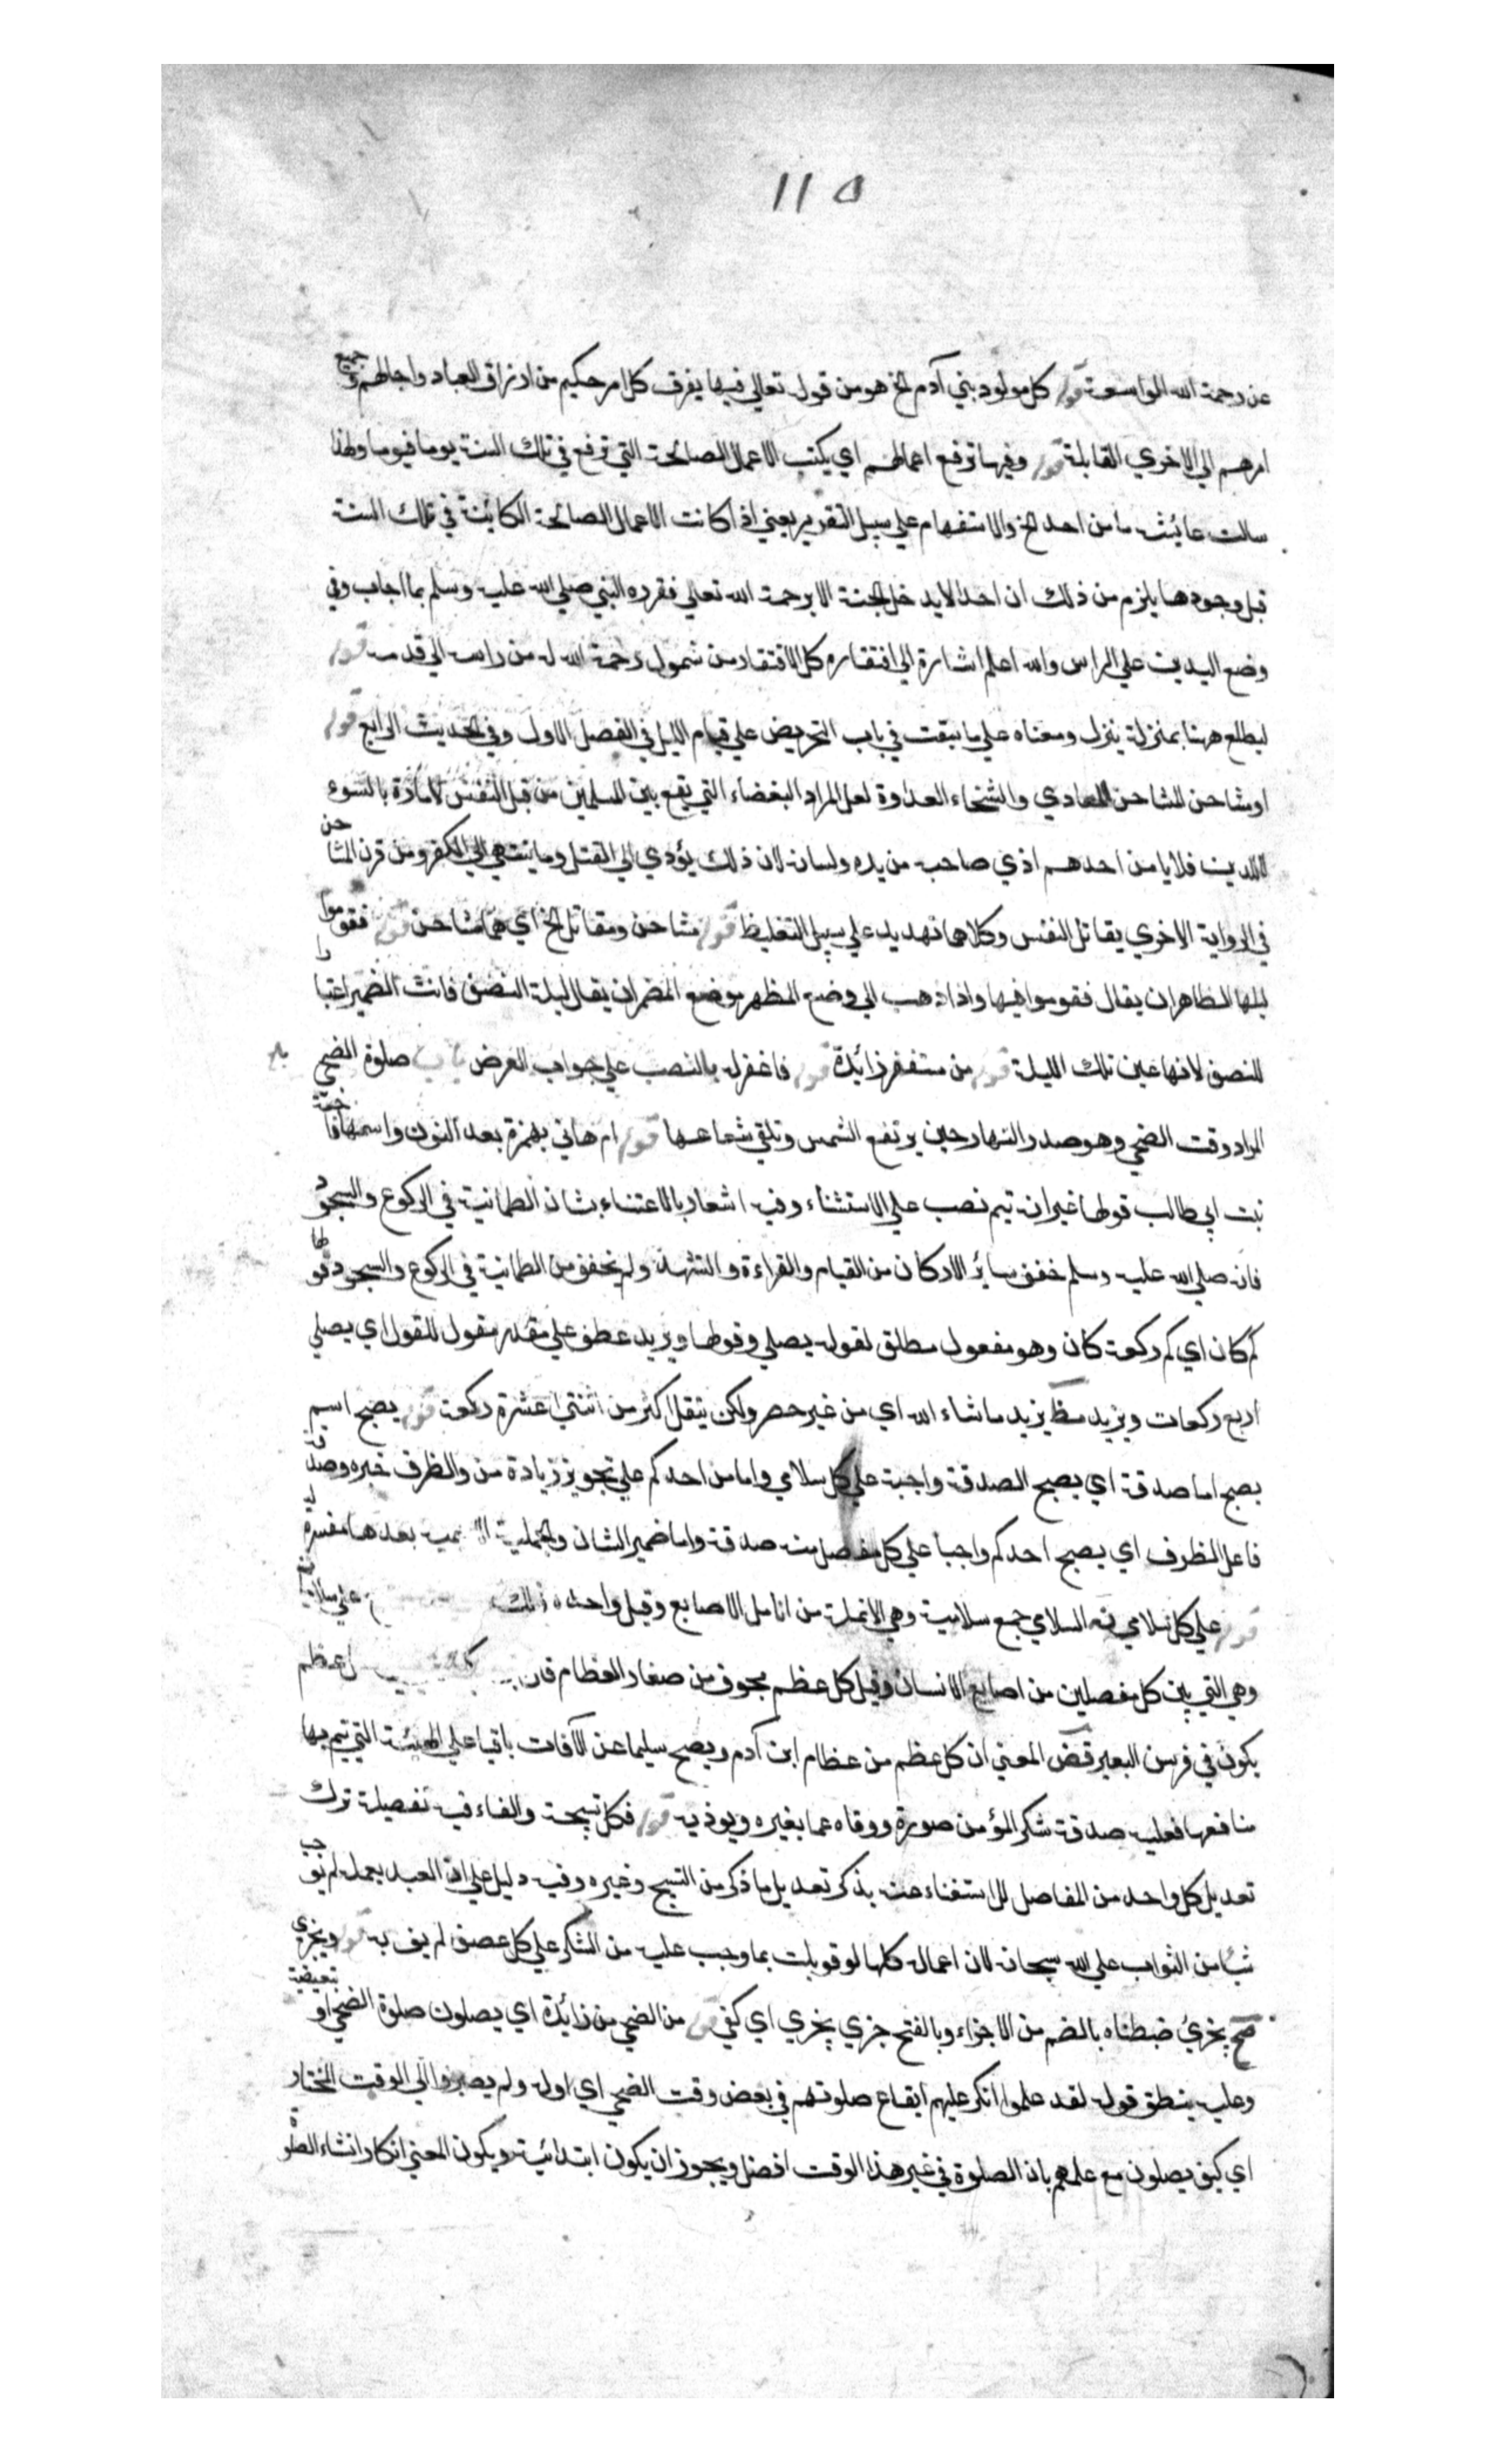 ١١٥
عن رحمة الله الواسعة قوله كل مولود بني آدم الخ هو من قوله تعالي فيها يفرق كل امر حكيم من ارزاق العباد واجالهم وجميع
امرهم الي الاخري القابلة قوله وفيها ترفع اعمالهم اي يكتب الاعمال الصالحة التي ترفع في تلك السنة يوما فيوما ولهذا
سالت عائشة ما من احد الخ والاستفهام علي سبيل التقرير يعني اذا كانت الاعمال الصالحة الكائنة في تلك السنة
قبل وجودها يلزم من ذلك ان احدا لا يدخل الجنة الا برحمة الله تعالي فقرره النبي صلي الله عليه وسلم بما اجاب وفي
وضع اليدين علي الراس والله اعلم اشارة الي افتقاره كل الافتقار من شمول رحمة الله له من راسه الي قدمه قوله
ليطلع ههنا بمنزلة ينزل ومعناه علي ما سبقت في باب التحريض علي قيام الليل في الفصل الاول وفي الحديث الرابع قوله
او مشاحن المشاحن المعادي والشحناء العداوة لعل المراد البغضاء التي يقع بين المسلمين من قبل النفس الامارة بالسوء
لا للدين فلا يامن احدهم اذي صاحبه من يده ولسانه لان ذلك يؤدي الي القتل وما ينتهي الي الكفر ومن قرن المشاحن
في الرواية الاخري يقاتل النفس وكلاهما تهديد علي سبيل التغليظ قوله مشاحن ومقاتل الخ اي هما مشاحن قوله فقوموا
ليلها الظاهر ان يقال فقوموا فيها واذا ذهب الي وضع المظهر موضع المضمر ان يقال ليلة النصف فانث الضمير اعتبارا
للنصف لانها عين تلك الليلة قوله من مستغفر زائدة قوله فاغفر له بالنصب علي جواب العرض باب صلوة الضحي
المراد وقت الضحي وهو صدر النهار حين يرتفع الشمس وتلقي شعاعها قوله ام هاني بهمزة بعد النون واسمها فاختة
بنت ابي طالب قولها غير انه يتم نصب علي الاستثناء وفيه اشعار بالاعتناء بشان الطمانية في الركوع والسجود
فانه صلي الله عليه وسلم خفف سائر الاركان من القيام والقراءة والتشهد ولم يخفف من الطمانية في الركوع والسجود قولها
كم كان اي كم ركعة كان وهو مفعول مطلق لقوله يصلي وقولها ويزيد عطف علي مقدر مقول للقول اي يصلي
اربع ركعات ويزيد مظ يزيد ما شاء الله اي من غير حصر ولكن ينقل اكثر من اثنتي عشرة ركعة قوله يصبح اسم
يصبح اما صدقة اي يصبح الصدقة واجبة علي كل سلامي واما من احدكم علي تجويز زيادة من والظرف خبره وصدقة
فاعل الظرف اي يصبح احدكم واجبا علي كل مفصل منه صدقة واما ضمير الشان والجملة بعدها مفسرة له
قوله علي كل سلامي نه السلامي جمع سلامية وهي الانملة من انامل الاصابع وقيل واحده
وهي التي بين كل مفصلين من اصابع الانسان وقيل كل عظم مجوف من صغار العظام
يكون في فرسن البعير قض المعني ان كل عظم من عظام ابن آدم ويصبح سليما عن الآفات باقيا علي الهيئة التي تتم بها
منافعها فعليه صدقة شكرا لمؤمن صورة ووقاه عما يغيره ويوذيه قوله فكل تسبيحة والفاء فيه تفصيلة ترك
تعديل كل واحد من المفاصل للاستغناء عنه بذكر تعديل ما ذكر من التسبيح وغيره وفيه دليل علي ان العبد بعمله لم يوجب
شيئا من الثواب علي الله سبحانه لان اعماله كلها لو قوبلت بما وجب عليه من الشكر علي كل عضو لم يف به قوله ويجزي
مح يجزئ ضبطناه بالضم من الاجزاء وبالفتح جزي يجزي اي كفي قوله من الضحي من زائدة اي يصلون صلوة الضحي او تبعيضية
وعليه ينطق قوله لقد علموا انكر عليهم ايقاع صلوتهم في بعض وقت الضحي اي اوله ولم يصبروا الي الوقت المختار
اي كيف يصلون مع علمهم بان الصلوة في غير هذا الوقت افضل ويجوز ان يكون ابتدائية ويكون المعني انكار انشاء الصلوة